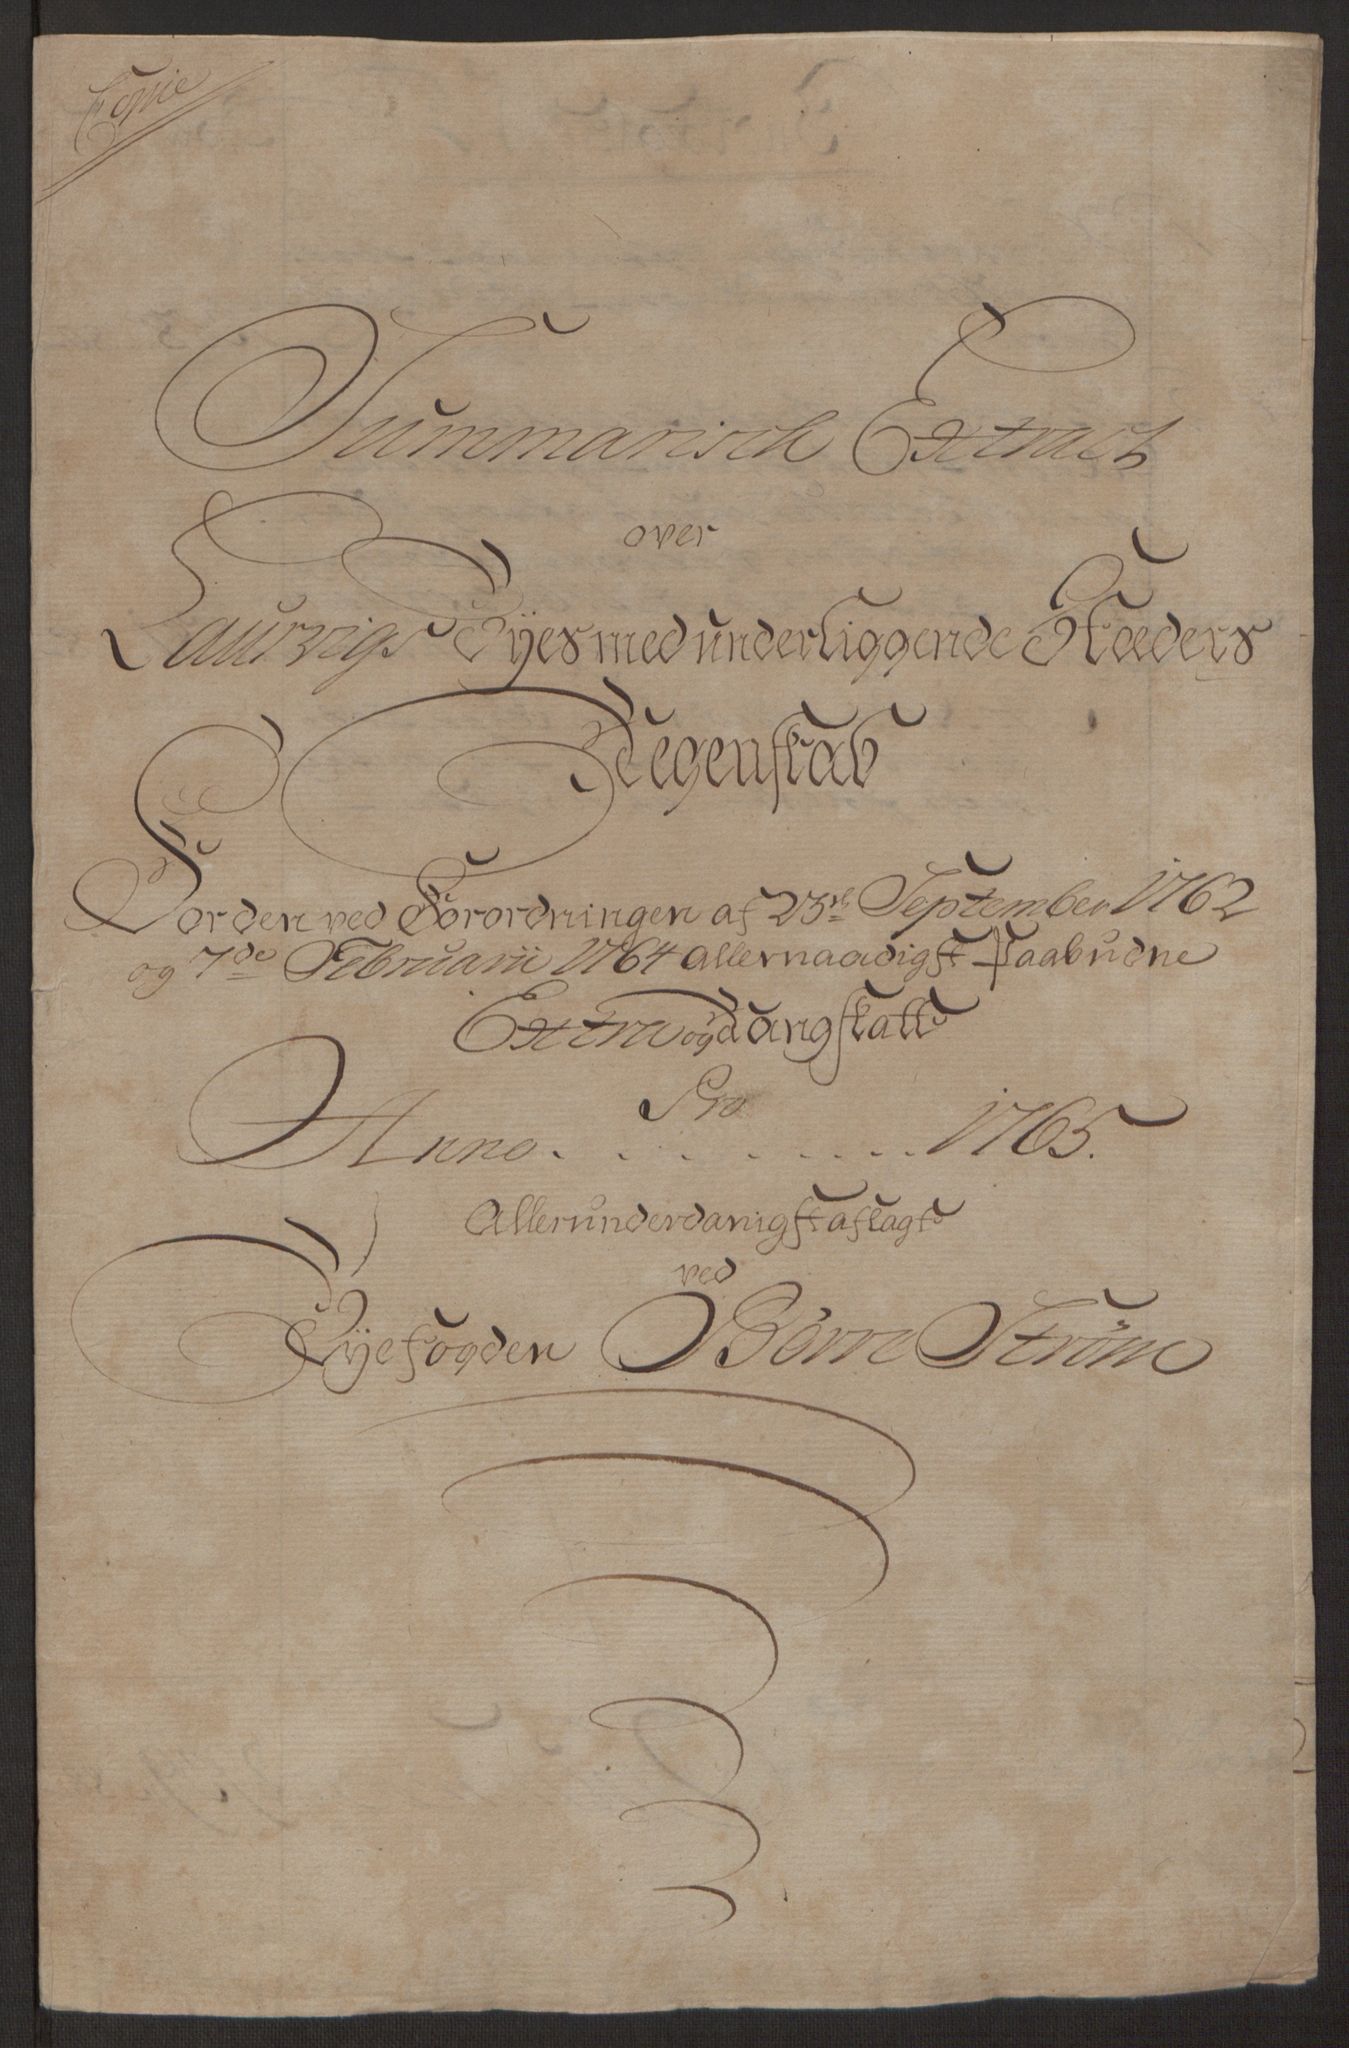 Copie
Summarisch Extract
over
Laurvigs Byes med underliggende Stæders
Regenskab
For den ved Forordningen af 23de September 1762
og 7de Februarii 1764 allernaadigst Paabudne
Extra og Rangskatt
Pro
Anno . . . . . . . . . 1765.
Allerunderdanigst aflagt
ved
Byefogden Börre Ström